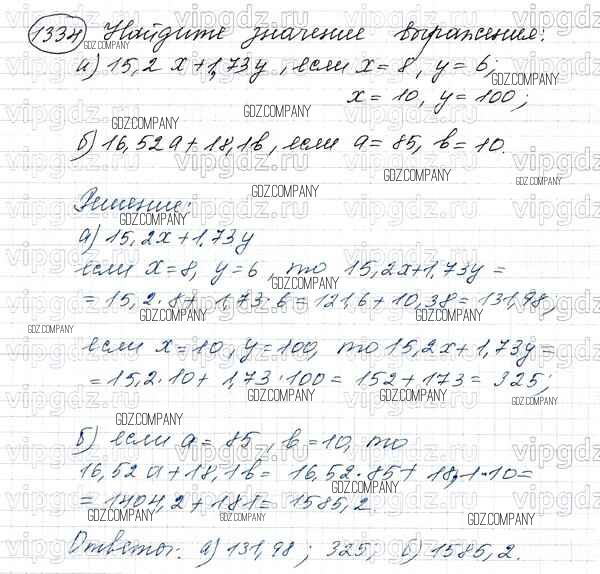 1334 Найдите значение выражения:
а) 15,2x+1,73y, если x=8, y=6;
x=10, y=100;
б) 16,52a+18,1b, если a=85, b=10.
Решение:
а) 15,2x+1,73y
если x=8, y=6, то 15,2x+1,73y=
=15,2·8+1,73·6=121,6+10,38=131,98,
если x=10, y=100, то 15,2x+1,73y=
=15,2·10+1,73·100=152+173=325;
б) если a=85, b=10, то
16,52a+18,1b=16,52·85+18,1·10=
=1404,2+181=1585,2.
Ответы: а) 131,98; 325; б) 1585,2.